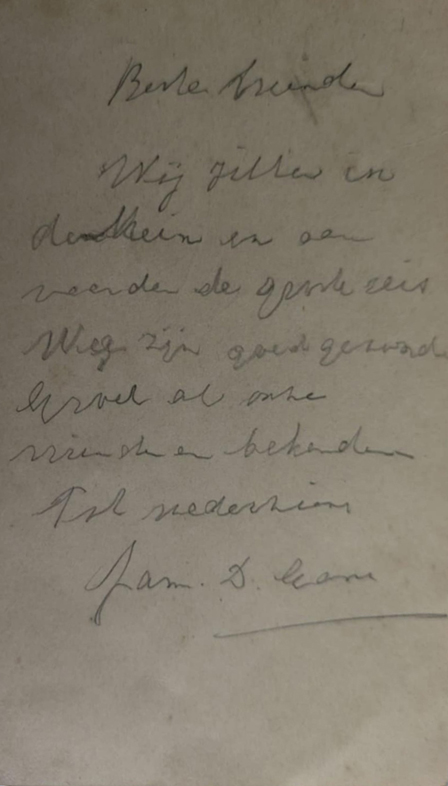 Beste vrienden
Wij zitten in
de trein en aan
vaarden de grote reis
Wij zijn goed gezond
Groet al onze
vrienden en bekenden
Tot wederziens
Fam. D.